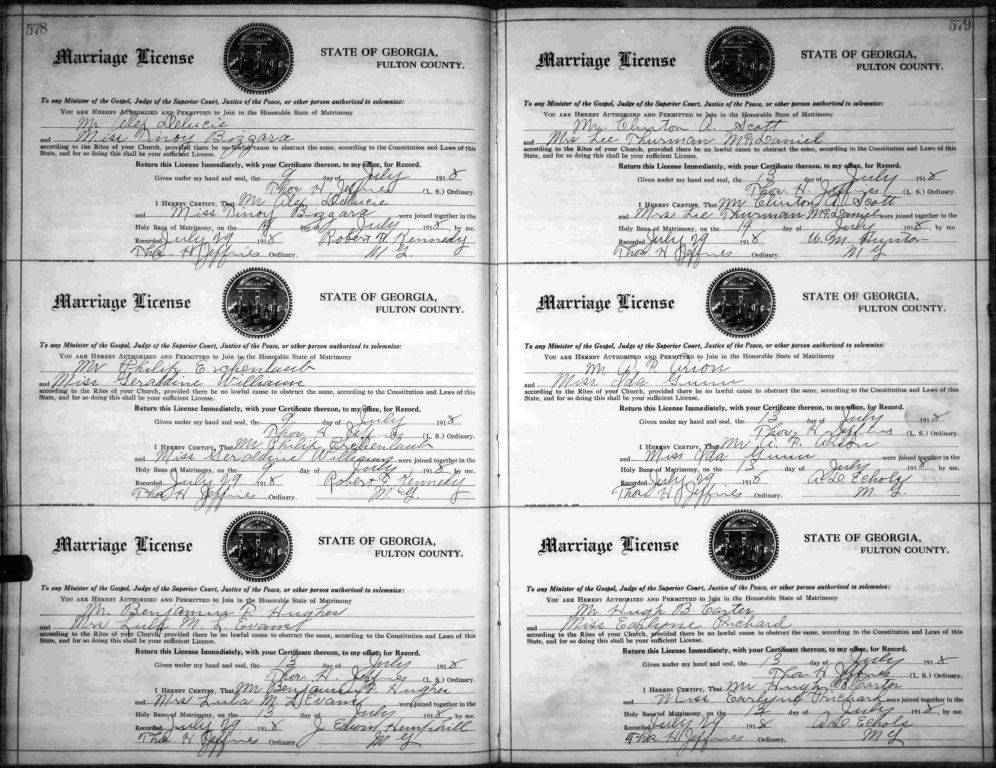 578
Marriage License
STATE OF GEORGIA,
FULTON COUNTY.
To any Minister of the Gospel, Judge of the Superior Court, Justice of the Peace, or other person authorized to solemnize:
YOU ARE HEREBY AUTHORIZED AND PERMITTED to Join in the Honorable State of Matrimony
Mr Alex Delucie
and Miss Dinoy Bozzara
according to the Rites of your Church, provided there be no lawful cause to obstruct the same, according to the Constitution and Laws of this
State, and for so doing this shall be your sufficient License.
Return this License Immediately, with your Certificate thereon, to my office, for Record.
Given under my hand and seal, the 9 day of July 1918
Thos H Jeffries (L. S.) Ordinary.
I HEREBY CERTIFY, That Mr Alex Delucie
and Miss Dinoy Bozzara were joined together in the
Holy Bans of Matrimony, on the day of July 1918, by me.
Recorded July 29 1918 Robert H Kennedy
Thos H Jeffries Ordinary. M G
Marriage License
STATE OF GEORGIA,
FULTON COUNTY.
To any Minister of the Gospel, Judge of the Superior Court, Justice of the Peace, or other person authorized to solemnize:
YOU ARE HEREBY AUTHORIZED AND PERMITTED to Join in the Honorable State of Matrimony
Mr Philip Erchenlaub
and Miss Geraldine Williams
according to the Rites of your Church, provided there be no lawful cause to obstruct the same, according to the Constitution and Laws of this
State, and for so doing this shall be your sufficient License.
Return this License Immediately, with your Certificate thereon, to my office, for Record.
Given under my hand and seal, the 9 day of July 1918
Thos H Jeffries (L. S.) Ordinary.
I HEREBY CERTIFY, That Mr Philip Erchenlaub
and Miss Geraldine Williams were joined together in the
Holy Bans of Matrimony, on the 9 day of July 1918, by me.
Recorded July 29 1918 Robert Kennedy
Thos H Jeffries Ordinary. M G
Marriage License
STATE OF GEORGIA,
FULTON COUNTY.
To any Minister of the Gospel, Judge of the Superior Court, Justice of the Peace, or other person authorized to solemnize:
YOU ARE HEREBY AUTHORIZED AND PERMITTED to Join in the Honorable State of Matrimony
Mr. Benjamin P. Hughes
and Mrs Lula M. L Evans
according to the Rites of your Church, provided there be no lawful cause to obstruct the same, according to the Constitution and Laws of this
State, and for so doing this shall be your sufficient License.
Return this License Immediately, with your Certificate thereon, to my office, for Record.
Given under my hand and seal, the 13 day of July 1918
Thos. H. Jeffries (L. S.) Ordinary.
I HEREBY CERTIFY, That Mr Benjamin P. Hughes
and Mrs Lula M L Evans were joined together in the
Holy Bans of Matrimony, on the day of July 1918, by me.
Recorded July 29 1918 J Edwin Hemphill
Thos H Jeffries Ordinary. M G
579
Marriage License
STATE OF GEORGIA,
FULTON COUNTY.
To any Minister of the Gospel, Judge of the Superior Court, Justice of the Peace, or other person authorized to solemnize:
YOU ARE HEREBY AUTHORIZED AND PERMITTED to Join in the Honorable State of Matrimony
Mr. Clinton A. Scott
and Mrs Lee Thurman McDaniel
according to the Rites of your Church, provided there be no lawful cause to obstruct the same, according to the Constitution and Laws of this
State, and for so doing this shall be your sufficient License.
Return this License Immediately, with your Certificate thereon, to my office, for Record.
Given under my hand and seal, the 13 day of July 1918
Thos H. Jeffries (L. S.) Ordinary.
I HEREBY CERTIFY, That Mr Clinton A. Scott
and Mrs Lee Thurman McDaniel were joined together in the
Holy Bans of Matrimony, on the 14 day of July 1918, by me.
Recorded July 29 1918 W. M. Hunton
Thos H Jeffries Ordinary. M G
Marriage License
STATE OF GEORGIA,
FULTON COUNTY.
To any Minister of the Gospel, Judge of the Superior Court, Justice of the Peace, or other person authorized to solemnize:
YOU ARE HEREBY AUTHORIZED AND PERMITTED to Join in the Honorable State of Matrimony
Mr
and Miss Ida Gunn
according to the Rites of your Church, provided there be no lawful cause to obstruct the same, according to the Constitution and Laws of this
State, and for so doing this shall be your sufficient License.
Return this License Immediately, with your Certificate thereon, to my office, for Record.
Given under my hand and seal, the 13 day of July 1918
Thos H Jeffries (L. S.) Ordinary.
I HEREBY CERTIFY, That Mr
and Miss Ida Gunn were joined together in the
Holy Bans of Matrimony, on the 13 day of July 1918, by me.
Recorded July 29 1918 A L Echols
Thos H Jeffries Ordinary. M G.
Marriage License
STATE OF GEORGIA,
FULTON COUNTY.
To any Minister of the Gospel, Judge of the Superior Court, Justice of the Peace, or other person authorized to solemnize:
YOU ARE HEREBY AUTHORIZED AND PERMITTED to Join in the Honorable State of Matrimony
Mr Hugh B. Carter
and Miss Earlyne Prichard
according to the Rites of your Church, provided there be no lawful cause to obstruct the same, according to the Constitution and Laws of this
State, and for so doing this shall be your sufficient License.
Return this License Immediately, with your Certificate thereon, to my office, for Record.
Given under my hand and seal, the 13 day of July 1918
Thos H Jeffries (L. S.) Ordinary.
I HEREBY CERTIFY, That Mr Hugh B Carter
and Miss Earlyne Prichard were joined together in the
Holy Bans of Matrimony, on the 14 day of July 1918, by me.
Recorded July 29 1918 A L Echols
Thos H Jeffries Ordinary. M G